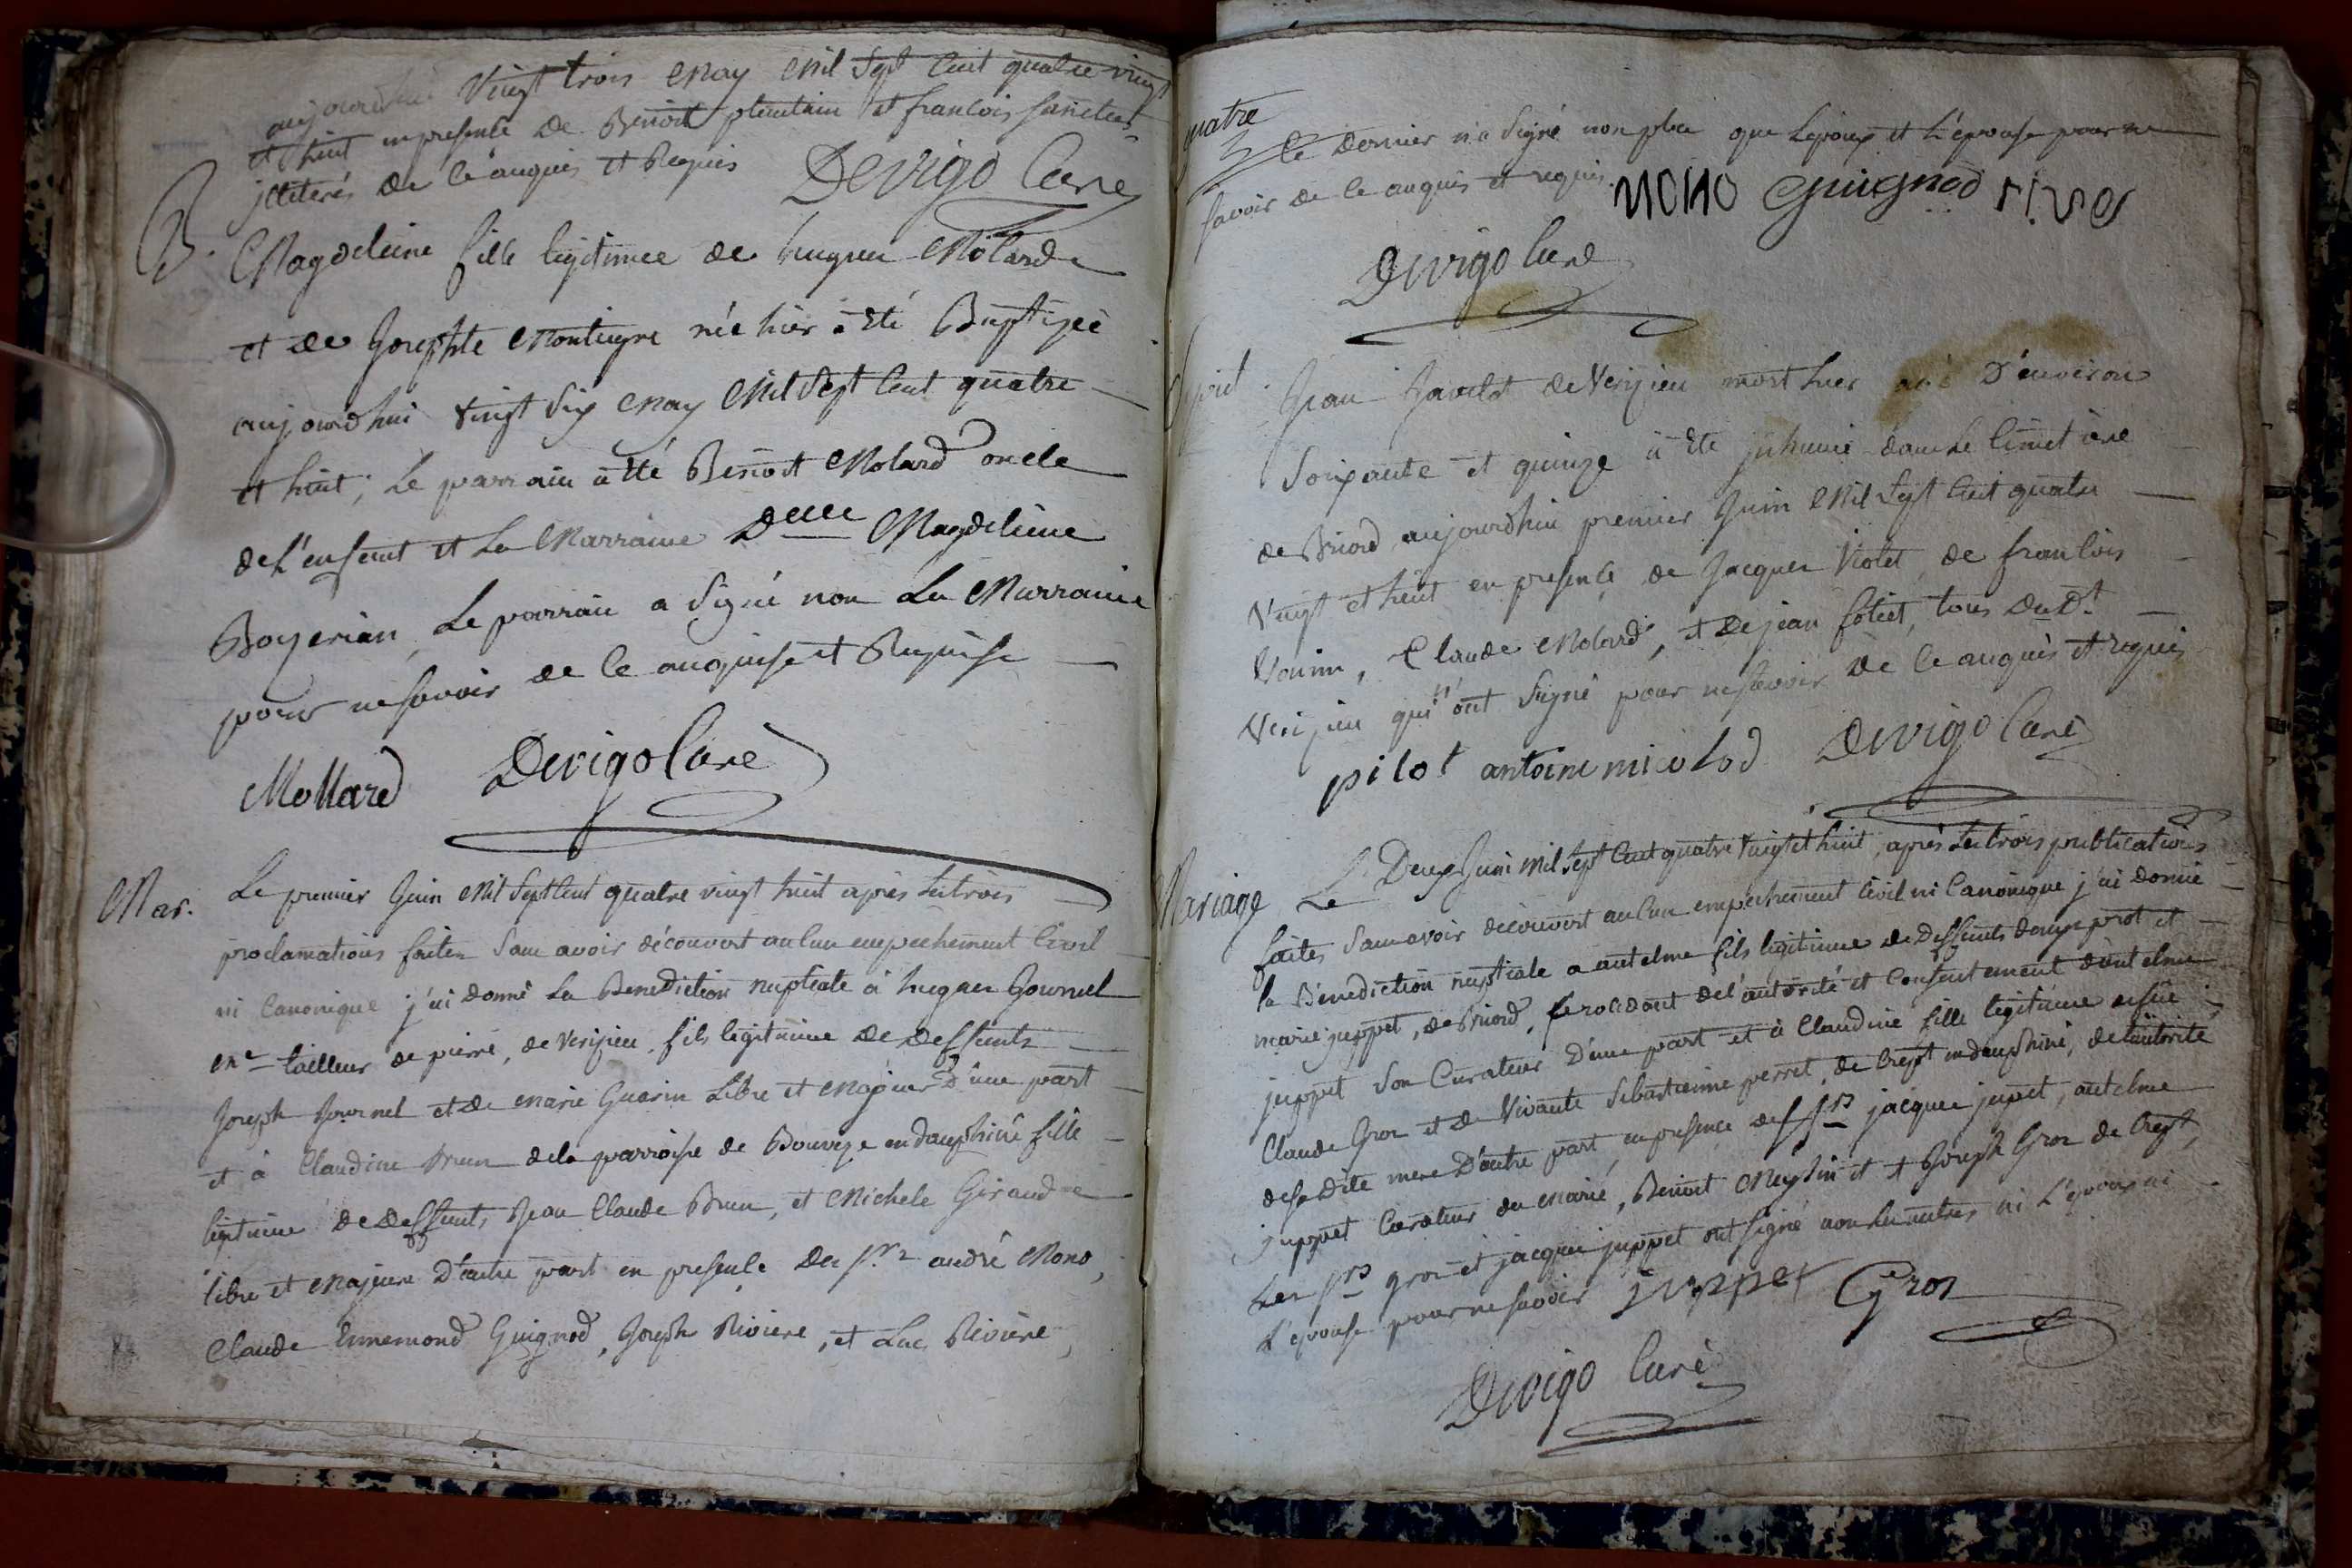 aujourdhui vingt trois may mil sept cent quatre vingt
et huit en presence de Benoit plantain et francois
jlliterés de ce enquis et Requis Devigo Curé
B. Magdeleine fille legitimee de hugues Molard
et de Josephte Montagne née hier à Eté Baptizée
aujourdhui vingt six may mil sept cent quatre
et huit; Le parrain a Eté Benoit Molard oncle
de L'enfant et La Marraine Delle Magdeleine
Boyerian, Le parrain a signé non La Marraine
pour ne savoir de ce enquise et Requise
Mollard Devigo Curé
Mar. Le premier Juin mil sept cent quatre vingt huit après les trois
proclamations faites sans avoir découvert aucun empechement Civil
ni Canonique j'ai donné La Benediction nuptiale à hugues Gournel
Me tailleur de pierre, de verizieu, fils legitime de deffunts
Joseph Journel et de marie Guerin Libre et Majeur D'une part
et à Claudine Brun de la parroisse de Bouvege en dauphiné fille
legitime de deffunts Jean Claude Brun, et Michele Giraud
libre et Majeure D'autre part en presence des srs andré Mono,
Claude Ennemond Guignod, Joseph Riviere, et Luc Riviere,
quatre
ce dernier n'a signé non plus que Lepoux et L'épouse pour ne
savoir de ce enquis et requis. mono Guignod rives
Devigo Curé
Jean Javelot de Verizieu mort hier agé D'environ
soixante et quinze à Eté jnhumé dans le Cimetiere
de Briord aujourdhui premier Juin mil sept cent quatre
vingt et huit en presence de Jacques Violet, de francois
Vonin, Claude Molard, et de jean tous du dt
Verizieu qui n'ont signé pour ne savoir de ce enquis et requis
pilot antoine micolod Devigo Curé
Mariage Le Deux Juin mil sept cent quatre vingt et huit, après les trois publications
faites sans avoir découvert aucun empechement Civil ni Canonique j'ai donné
la Bénediction nuptiale a antelme fils legitime de deffunts denys prot et
marie juppet, de Briord, procedant de l'autorité et consentement d'antelme
juppet son Curateur D'une part et à Claudine fille legitime à feu
Claude Gros et de Vivante Sebastienne perret, de Crept en dauphiné, de l'autorité
de sa Dite mere D'autre part, en presence des srs jacques jupet, antelme
juppet Curateur du Marié, Benoit Meyssin et et Joseph Gros de Crept,
Les srs gros et jacques juppet ont signé non les autres ni L'epoux ni
L'epouse pour ne savoir juppet Gros
Devigo Curé